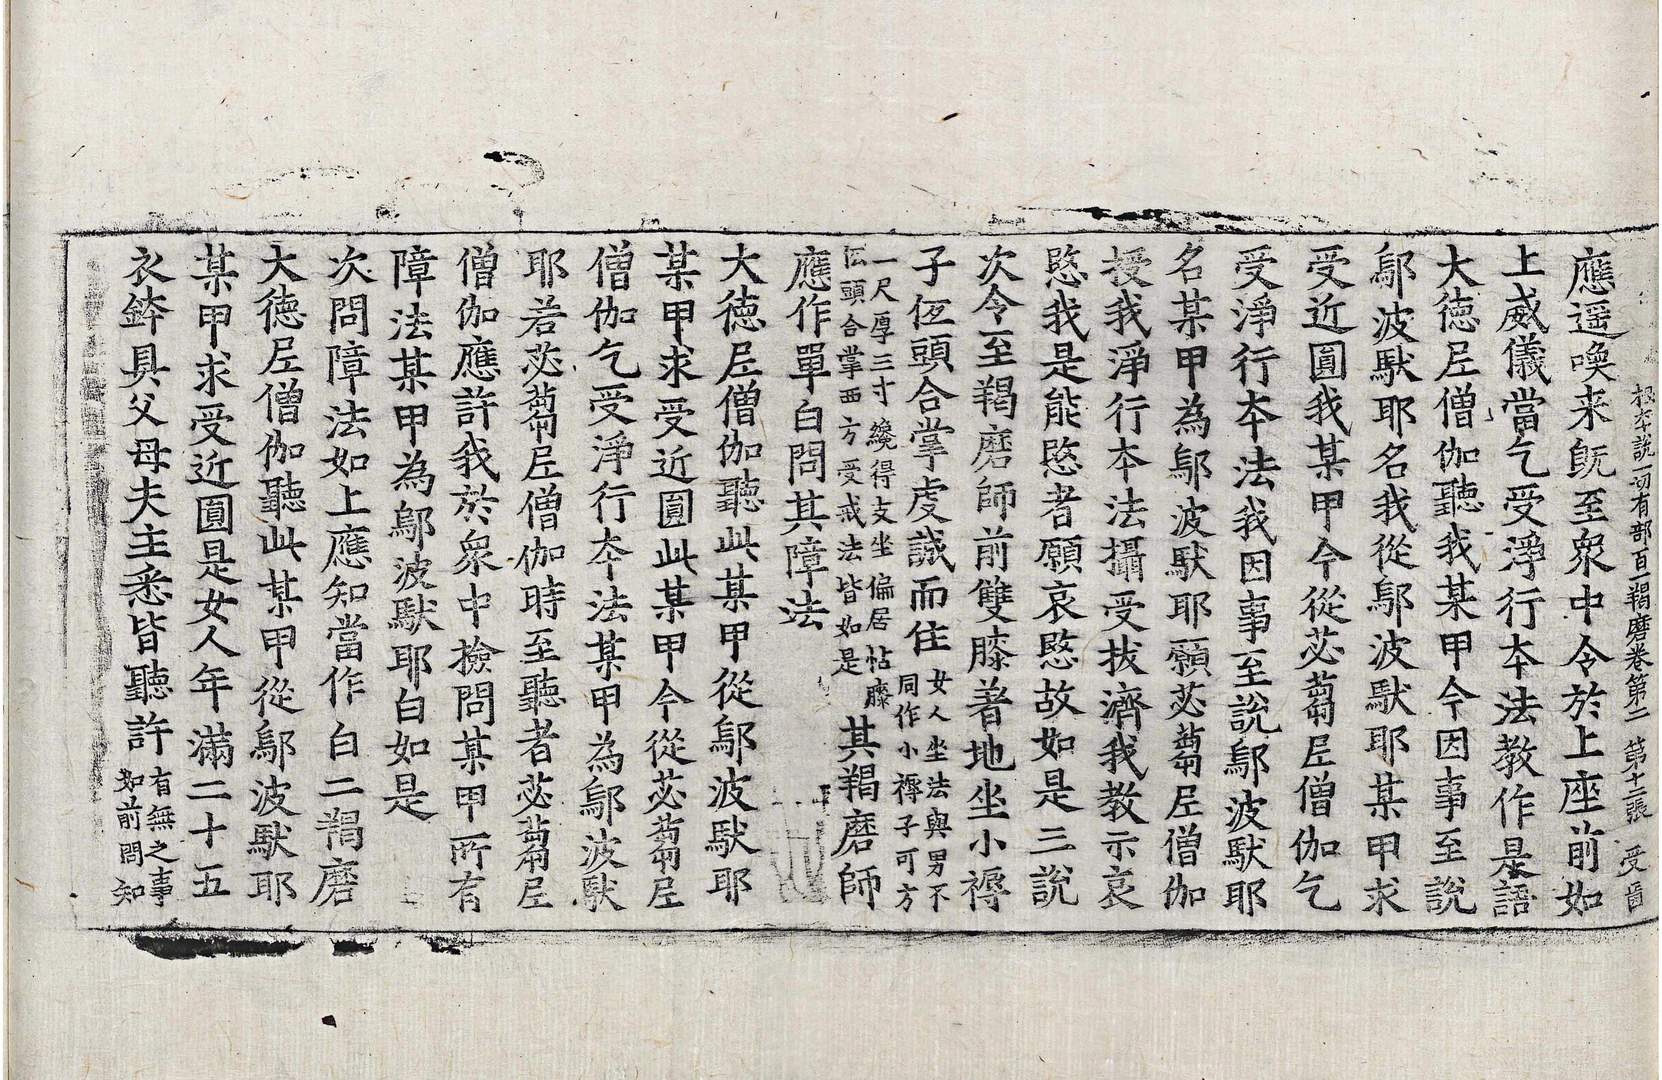 根本說一切有部百一羯磨卷第二 第十二張 受
應遥喚来旣至衆中令於上座前如
上威儀當乞受淨行夲法教作是語
大德尼僧伽聽我某甲今因事至說
鄔波馱耶名我從鄔波馱耶某甲求
受近圓我某甲今從苾蒭尼僧伽乞
受淨行夲法我因事至說鄔波馱耶
名某甲為鄔波馱耶願苾蒭尼僧伽
授我淨行夲法攝受拔濟我教示哀
愍我是能愍者願哀愍故如是三說
次令至羯磨師前雙膝著地坐小褥
子伍頭合掌虔誠而住女人坐法與男不
同作小褥子可方
一尺厚三寸纔得支坐偏居帖膝
伝頭合掌西方受戒法皆如是其羯磨師
應作單白問其障法
大德尼僧伽聽此某甲從鄔波馱耶
某甲求受近圓此某甲今從苾蒭尼
僧伽乞受淨行夲法某甲為鄔波馱
耶若苾蒭尼僧伽時至聽者苾蒭尼
僧伽應許我於衆中撿問某甲所有
障法某甲為鄔波馱耶白如是
次問障法如上應知當作白二羯磨
大德尼僧伽聽此某甲從鄔波馱耶
某甲求受近圓是女人年滿二十五
衣鉢具父母夫主悉皆聽許有無之事
如前問知